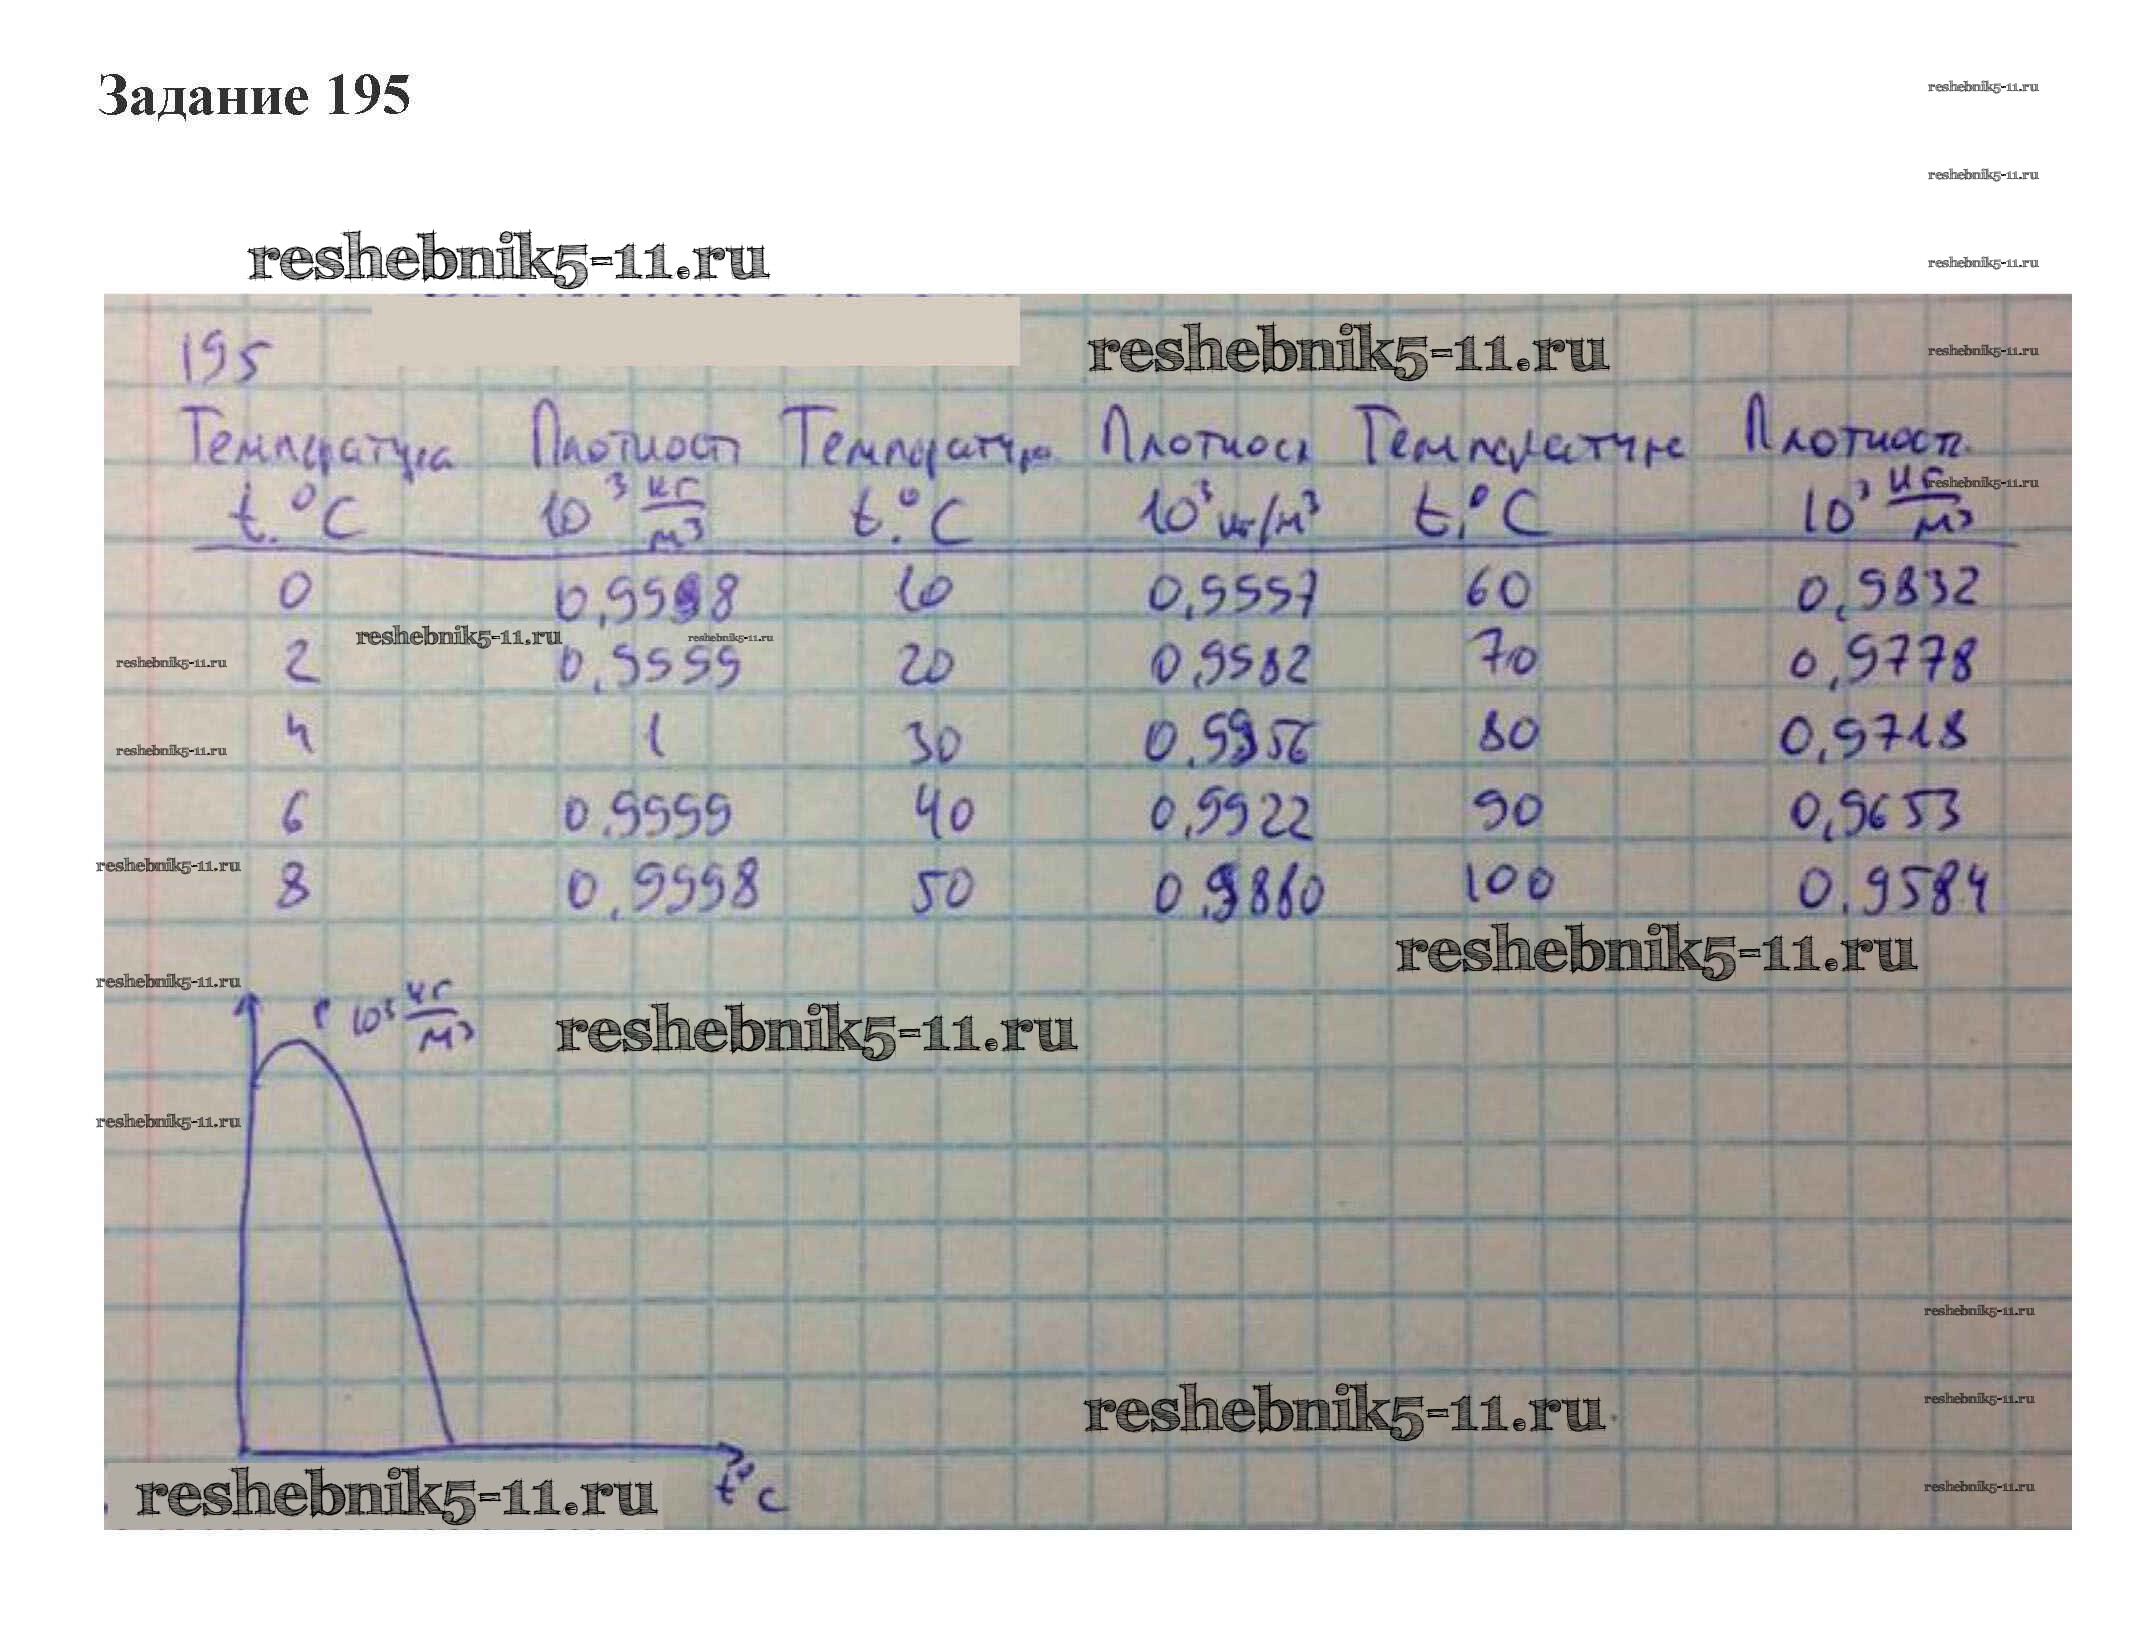 Задание 195
reshebnik5-11.ru
reshebnik5-11.ru
reshebnik5-11.ru
reshebnik5-11.ru
195
reshebnik5-11.ru
reshebnik5-11.ru
Температура Плотност Температура Плотност Температуре Плотност
t.°C 10³ кг/м³ t.°C 10³ кг/м³ t.°C 10³ кг/м³
reshebnik5-11.ru
0 0,9998 10 0,9997 60 0,9832
reshebnik5-11.ru reshebnik5-11.ru
reshebnik5-11.ru
2 0,9999 20 0,9982 70 0,9778
4 1 30 0,9956 80 0,9718
reshebnik5-11.ru
6 0,9999 40 0,9922 90 0,9653
reshebnik5-11.ru
8 0,9998 50 0,9880 100 0,9584
reshebnik5-11.ru
reshebnik5-11.ru
ρ 10³ кг/м³
reshebnik5-11.ru
reshebnik5-11.ru
reshebnik5-11.ru
reshebnik5-11.ru
reshebnik5-11.ru
reshebnik5-11.ru
reshebnik5-11.ru
t°C